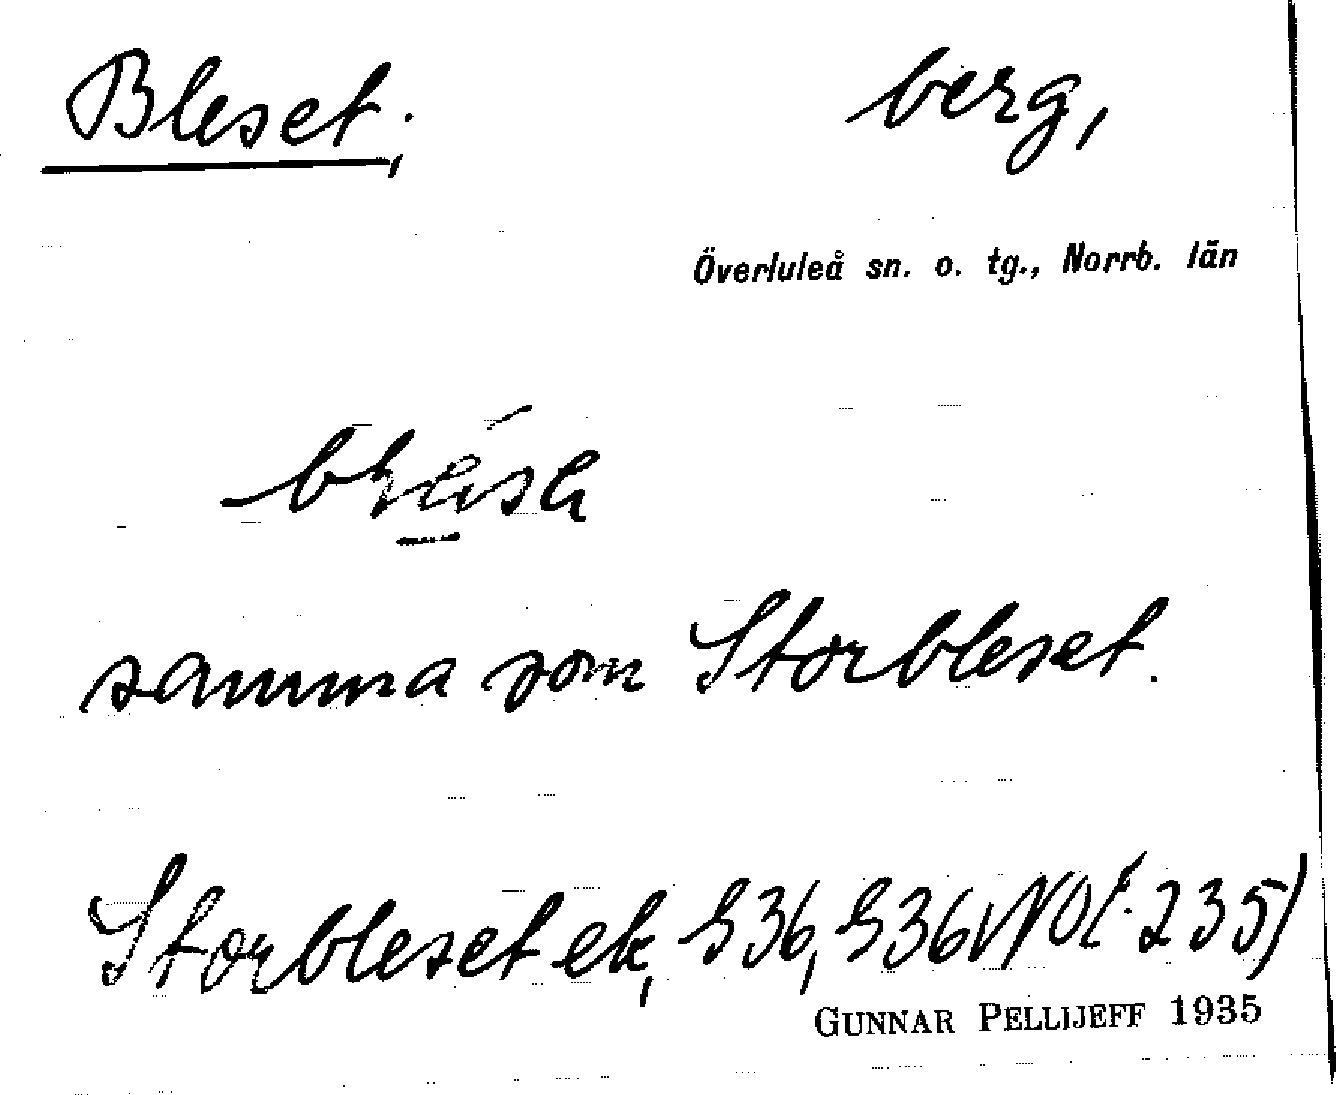 Bleset, berg,
Överluleå sn. o. tg., Norrb. län
samma som Storbleset.
Storbleset ek, 536, 536 VNO (: 235)
GUNNAR PELLIJEFF 1935